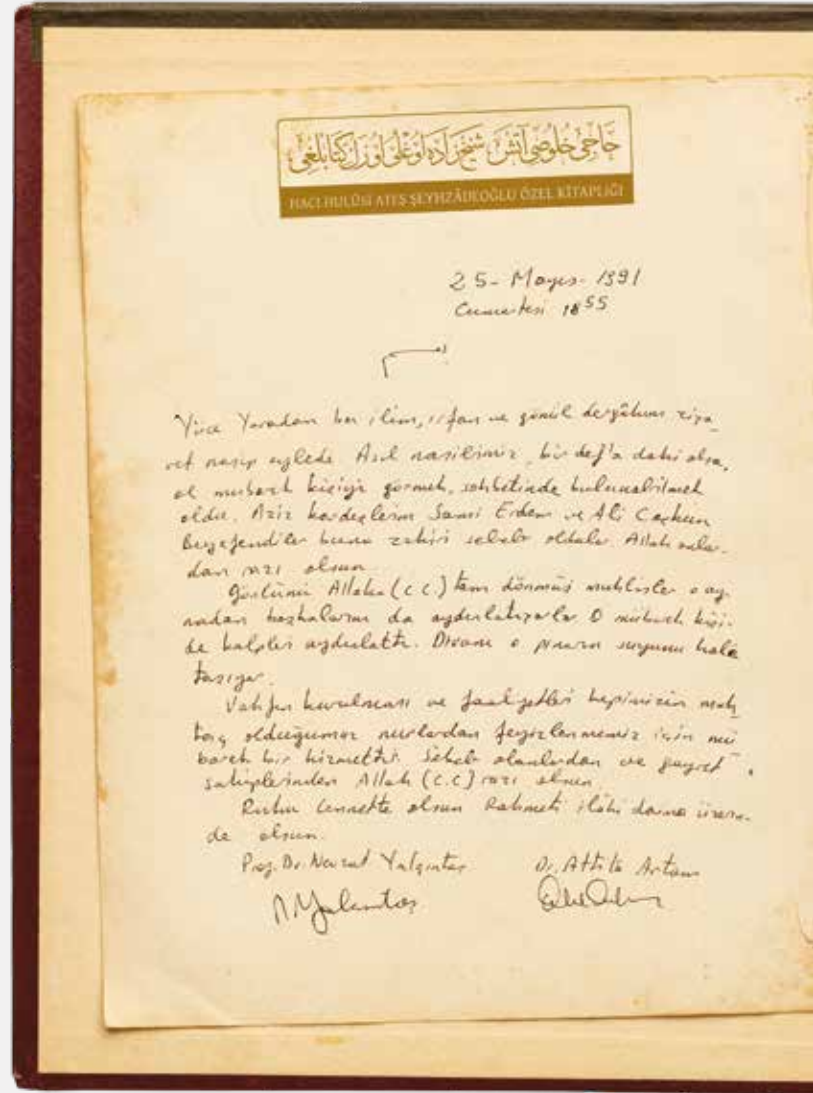 حاجی خلوصی آتش شیخزاده اوغلی اوزل کتابلغی
HACI HULÛSİ ATEŞ ŞEYHZÂDEOĞLU ÖZEL KİTAPLIĞI
25 - Mayıs - 1991
Cumartesi 18 55
Yüce Yaradan bu ilim, irfan ve gönül dergâhını ziya-
ret nasip eyledi. Asıl nasibimiz, bir def'a dahi olsa,
ol mubarek kişiyi görmek, sohbetinde bulunabilmek
oldu. Aziz kardeşlerim Sami Erdem ve Ali Coşkun
Beyefendiler buna zahiri sebeb oldular. Allah onlar-
dan razı olsun.
Gönlünü Allaha (c.c.) tam dönmüş muhlisler o ay-
nadan başkalarını da aydınlatıyorlar. O mübarek kişi-
de kalpleri aydınlattı. Divanı o pınarın suyunu hala
taşıyor.
Vakfın kurulması ve faaliyetleri hepimizin muh-
taç olduğumuz nurlardan feyizlenmemiz için mü-
barek bir hizmettir. Sebeb olanlardan ve gayret
sahiplerinden Allah (c.c) razı olsun.
Ruhu Cennette olsun Rahmeti ilâhi daima üzerin-
de olsun.
Prof. Dr. Nevzat Yalçıntaş Dr. Attila Artam
N. Yalçıntaş